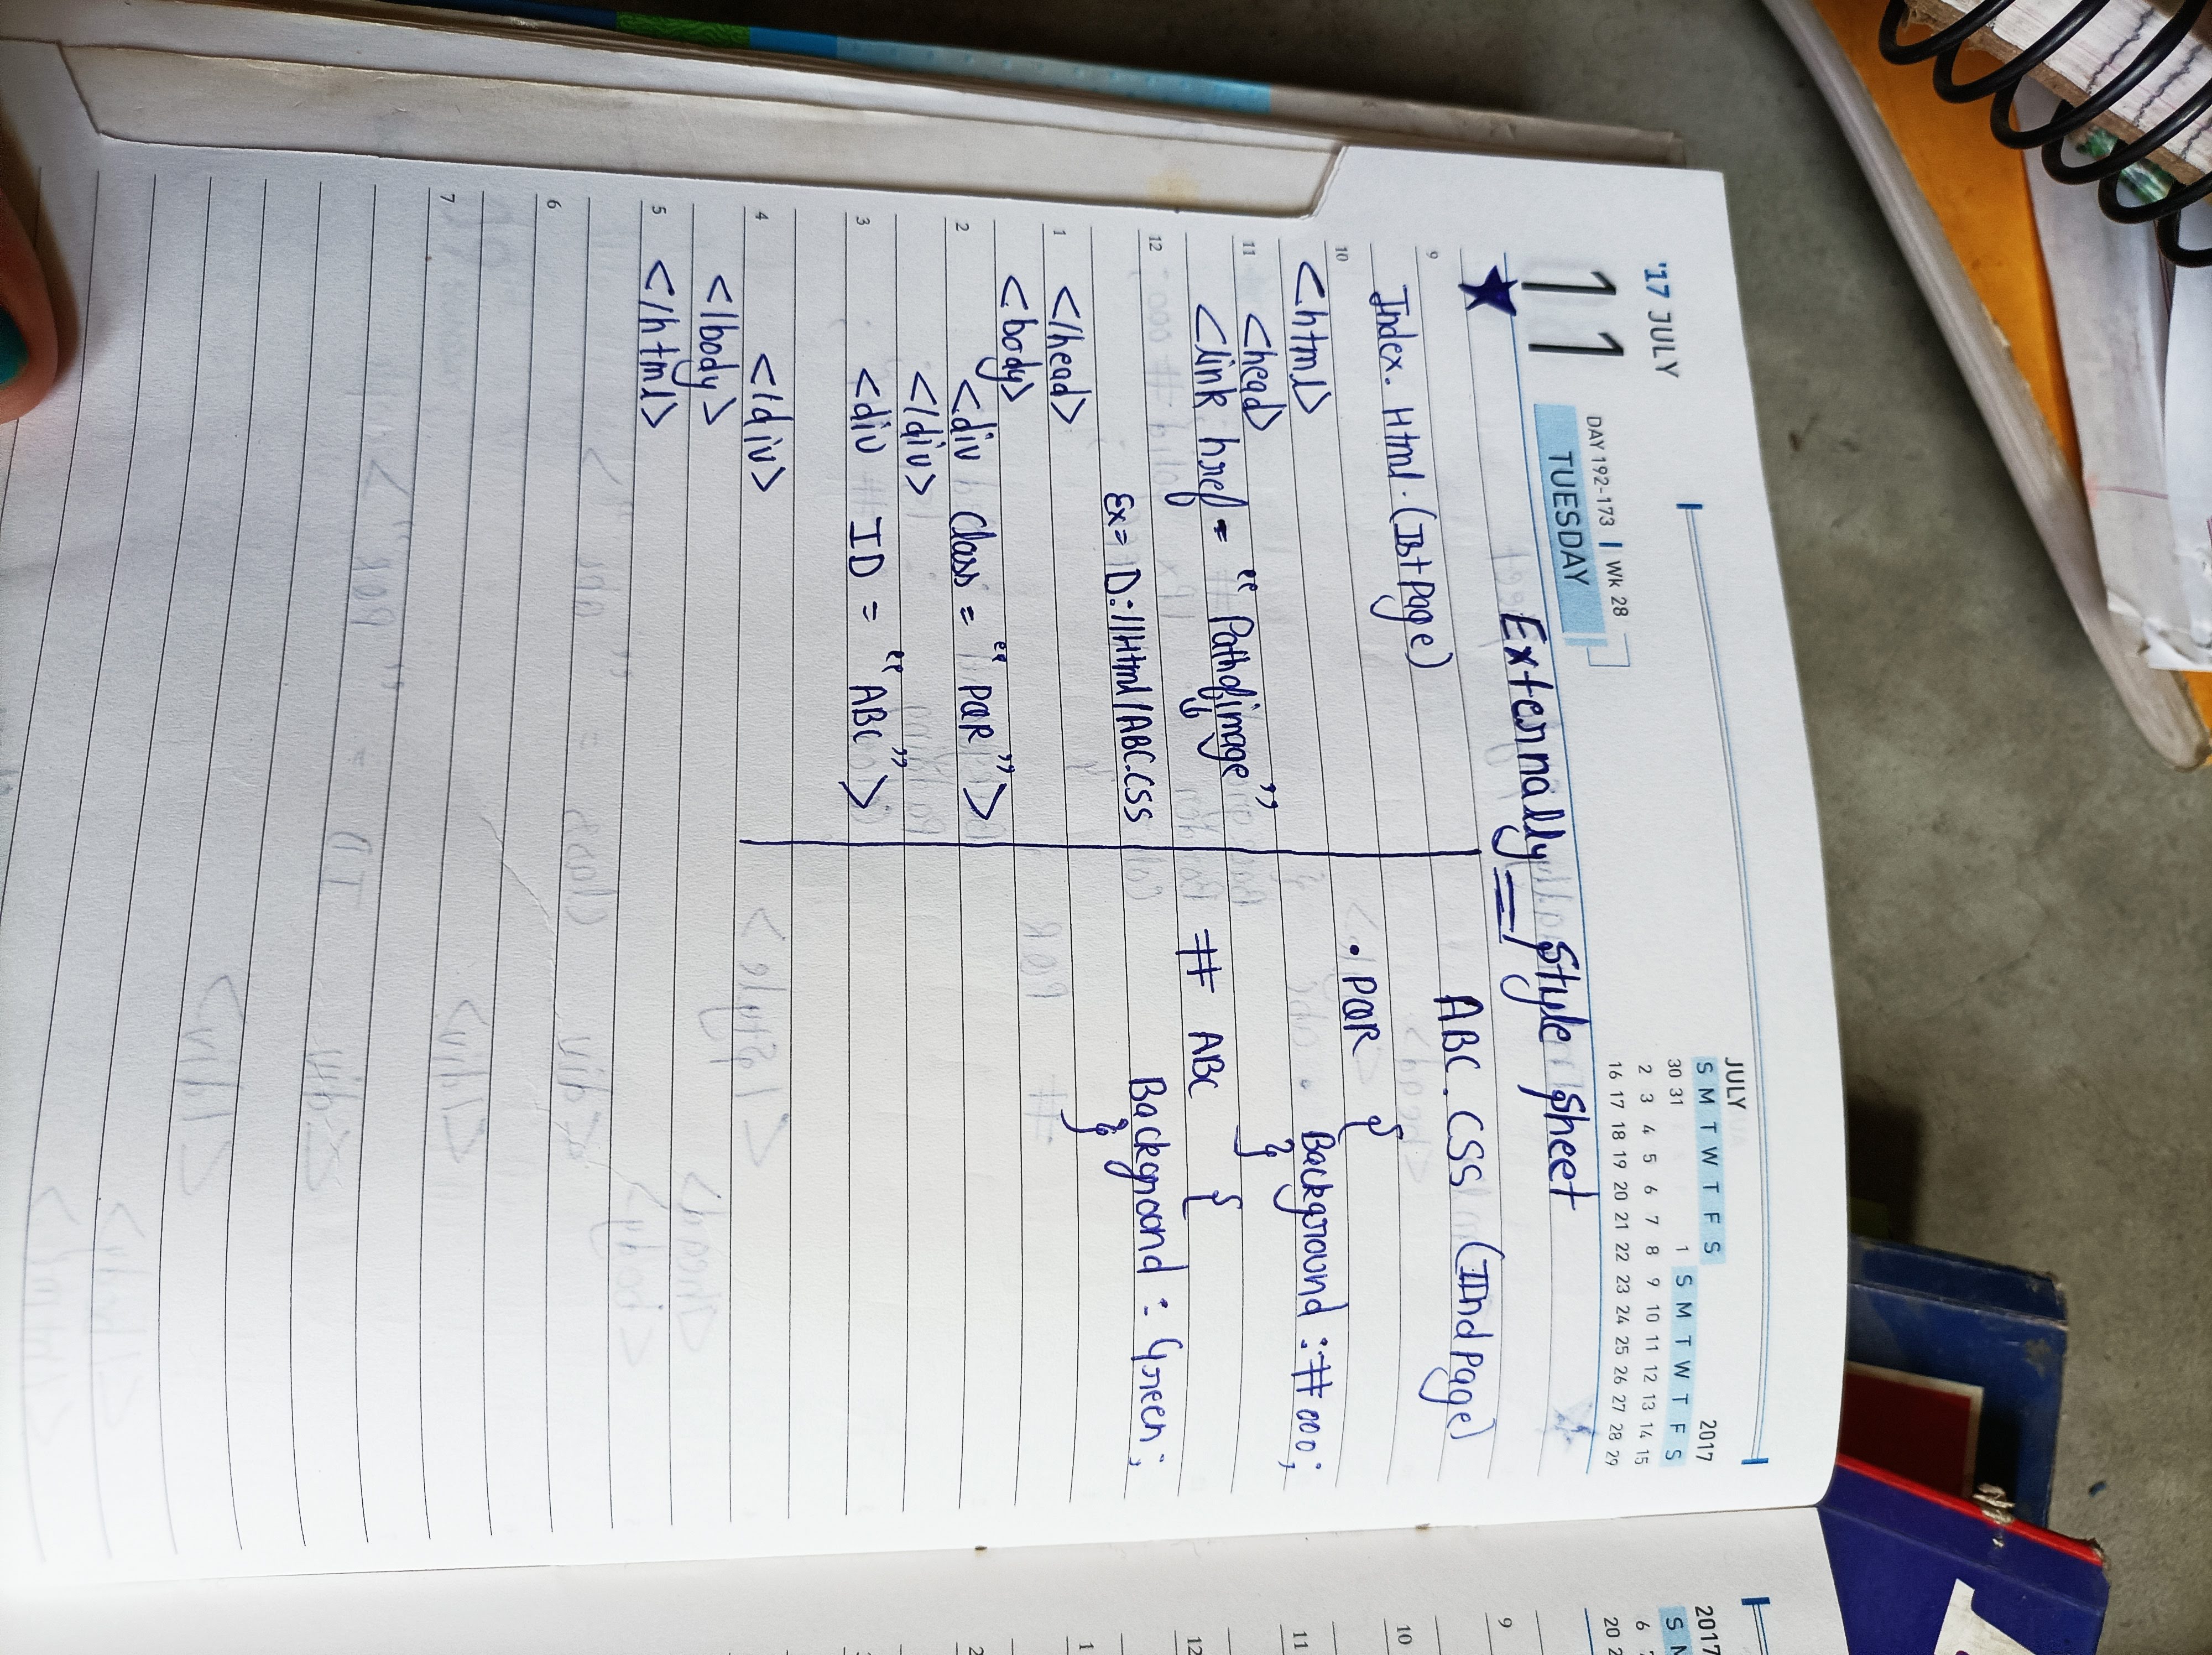 '17 JULY
11
DAY 192-173 | Wk 28
TUESDAY
JULY 2017
S M T W T F S S M T W T F S
30 31 1
2 3 4 5 6 7 8 9 10 11 12 13 14 15
16 17 18 19 20 21 22 23 24 25 26 27 28 29
★ Externally = / Style Sheet
9
Index. Html. (Ist Page)
10
<html>
11
<head>
<link href = "Pathofimage"
12
Ex= D://Html/ABC.CSS
1
</head>
<body>
2
<div Class = "PQR">
</div>
3
<div ID = "ABC">
4
</div>
</body>
5
</html>
6
7
ABC. CSS (IInd Page)
.PQR {
Background :#000;
}
# ABC {
Background : Green;
}
2017
S M
6
20 2
9
10
11
12
1
2